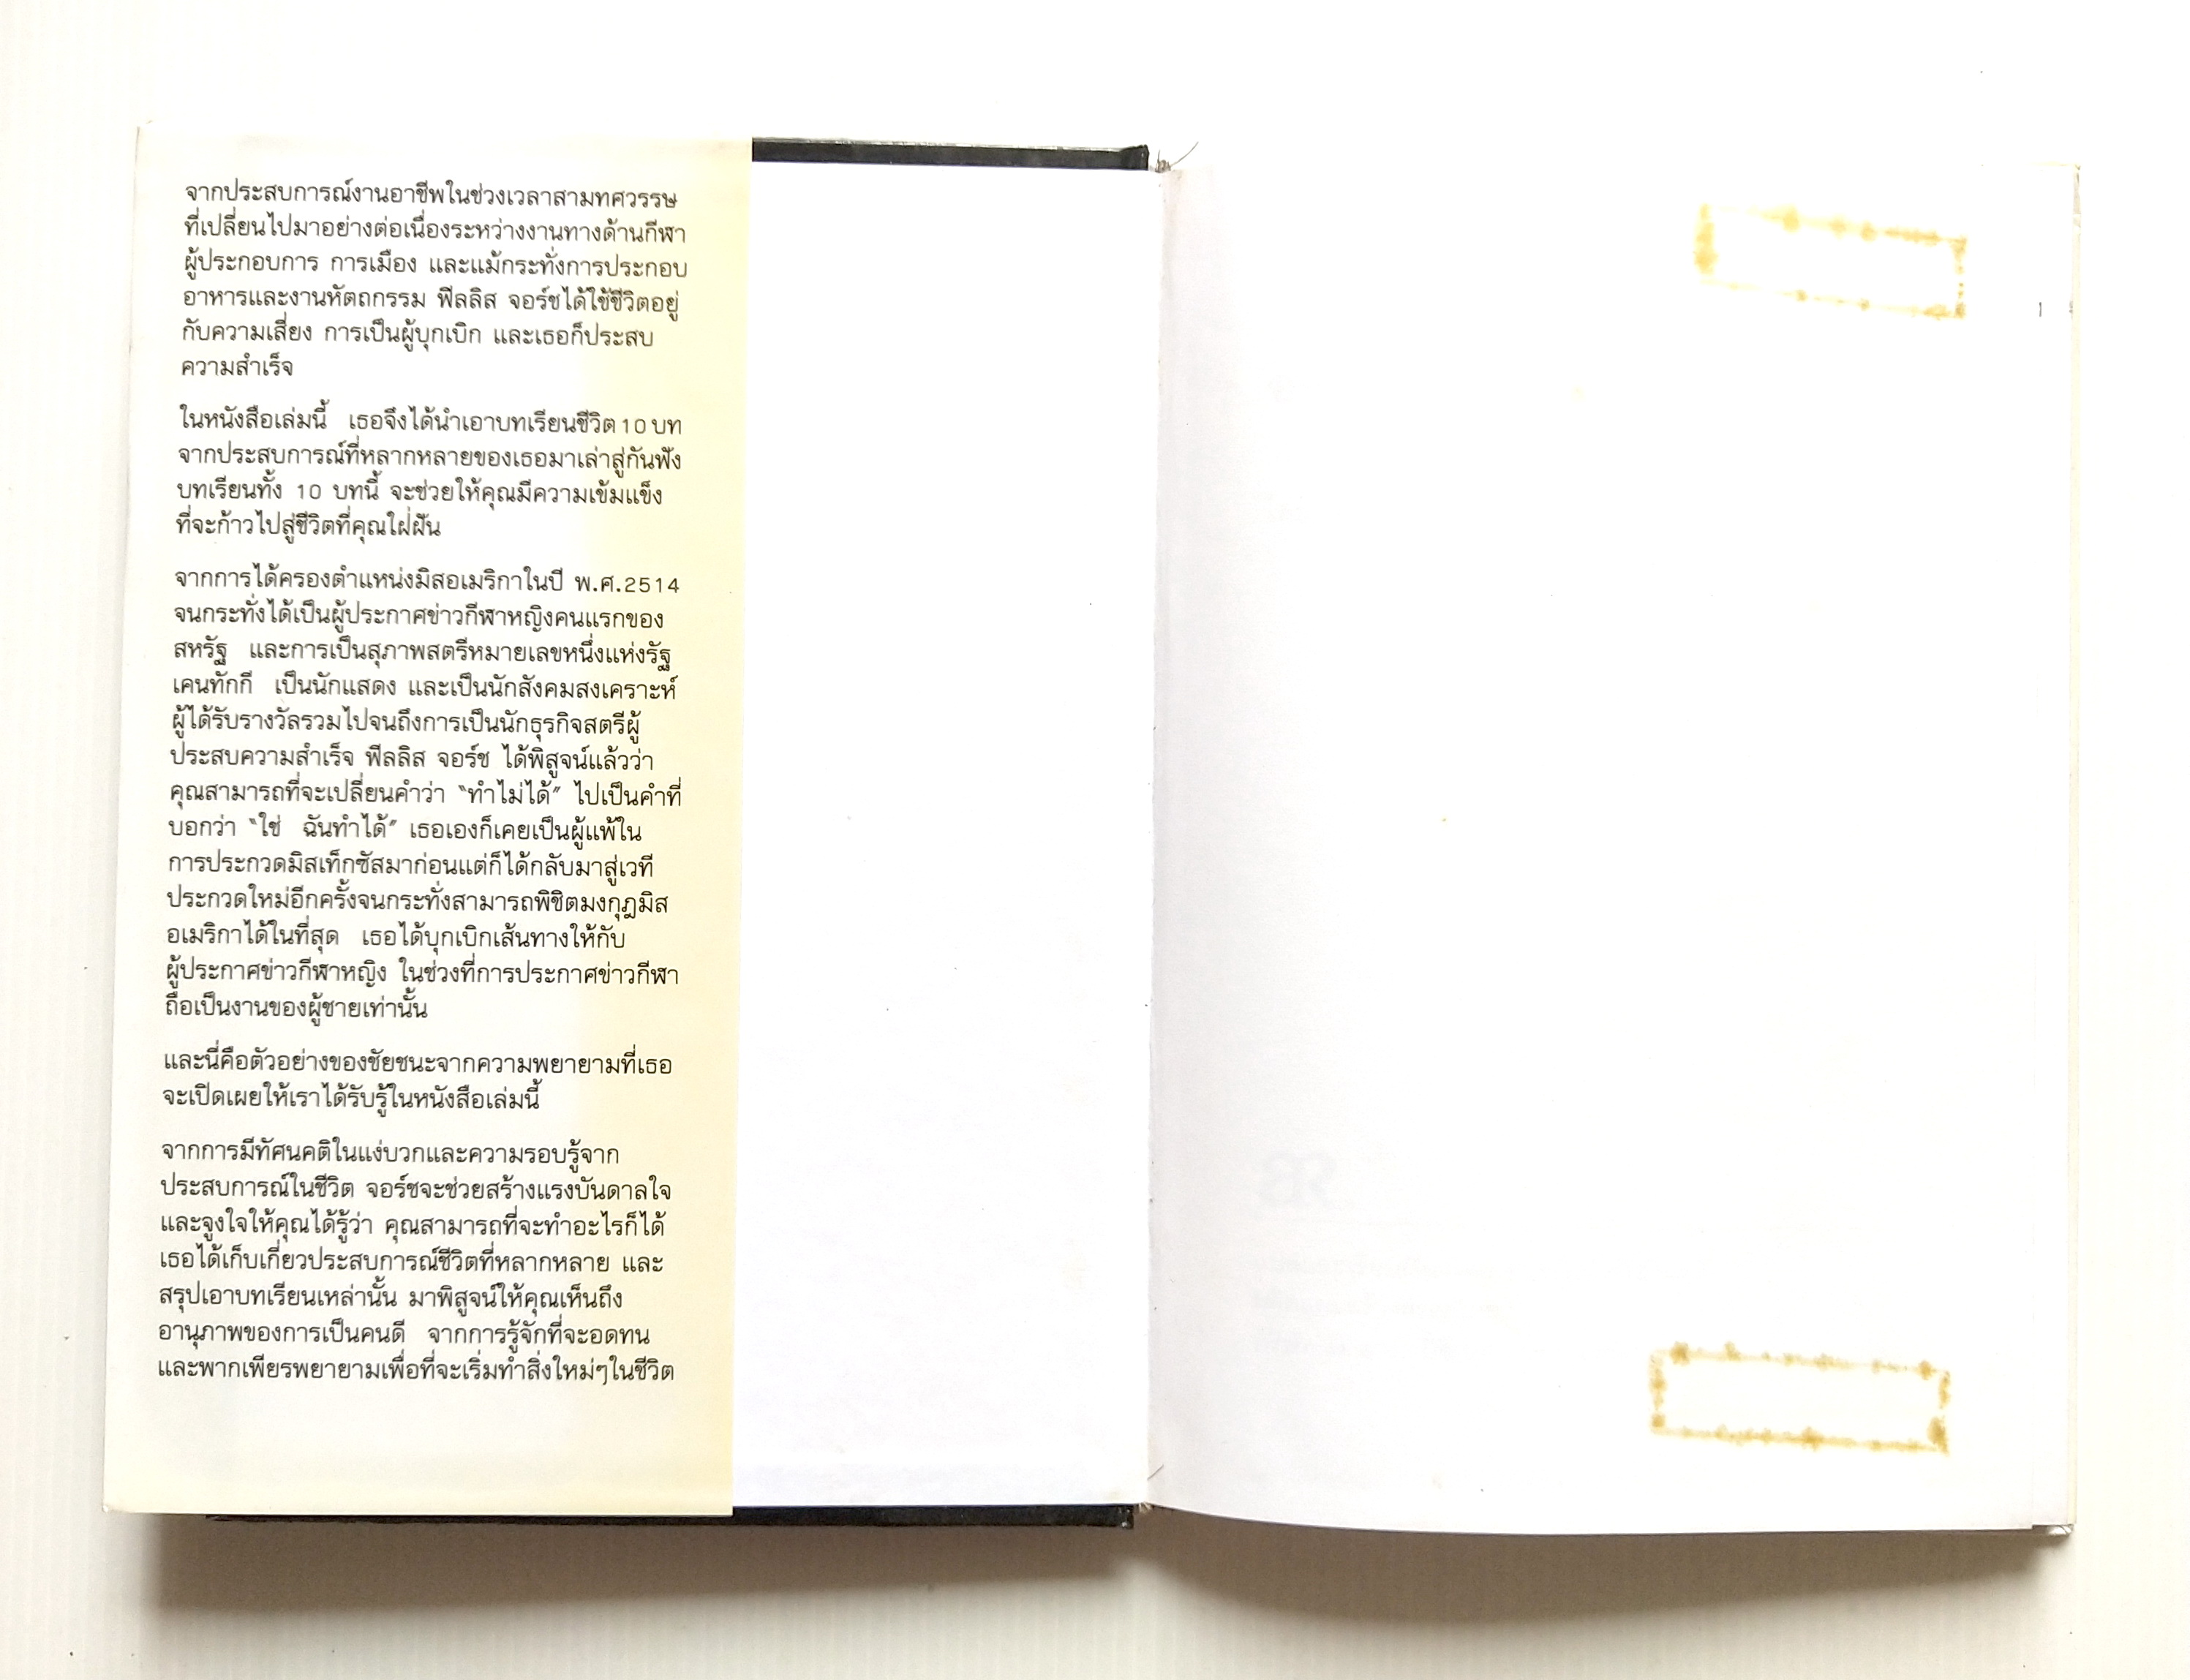 จากประสบการณ์งานอาชีพในช่วงเวลาสามทศวรรษ
ที่เปลี่ยนไปมาอย่างต่อเนื่องระหว่างงานทางด้านกีฬา
ผู้ประกอบการ การเมือง และแม้กระทั่งการประกอบ
อาหารและงานหัตถกรรม ฟิลลิส จอร์ชได้ใช้ชีวิตอยู่
กับความเสี่ยง การเป็นผู้บุกเบิก และเธอก็ประสบ
ความสำเร็จ
ในหนังสือเล่มนี้ เธอจึงได้นำเอาบทเรียนชีวิต 10 บท
จากประสบการณ์ที่หลากหลายของเธอมาเล่าสู่กันฟัง
บทเรียนทั้ง 10 บทนี้ จะช่วยให้คุณมีความเข้มแข็ง
ที่จะก้าวไปสู่ชีวิตที่คุณใฝ่ฝัน
จากการได้ครองตำแหน่งมิสอเมริกาในปี พ.ศ.2514
จนกระทั่งได้เป็นผู้ประกาศข่าวกีฬาหญิงคนแรกของ
สหรัฐ และการเป็นสุภาพสตรีหมายเลขหนึ่งแห่งรัฐ
เคนทักกี เป็นนักแสดง และเป็นนักสังคมสงเคราะห์
ผู้ได้รับรางวัลรวมไปจนถึงการเป็นนักธุรกิจสตรีผู้
ประสบความสำเร็จ ฟิลลิส จอร์ช ได้พิสูจน์แล้วว่า
คุณสามารถที่จะเปลี่ยนคำว่า "ทำไม่ได้" ไปเป็นคำที่
บอกว่า "ใช่ ฉันทำได้" เธอเองก็เคยเป็นผู้แพ้ใน
การประกวดมิสเท็กซัสมาก่อนแต่ก็ได้กลับมาสู่เวที
ประกวดใหม่อีกครั้งจนกระทั่งสามารถพิชิตมงกุฎมิส
อเมริกาได้ในที่สุด เธอได้บุกเบิกเส้นทางให้กับ
ผู้ประกาศข่าวกีฬาหญิง ในช่วงที่การประกาศข่าวกีฬา
ถือเป็นงานของผู้ชายเท่านั้น
และนี่คือตัวอย่างของชัยชนะจากความพยายามที่เธอ
จะเปิดเผยให้เราได้รับรู้ในหนังสือเล่มนี้
จากการมีทัศนคติในแง่บวกและความรอบรู้จาก
ประสบการณ์ในชีวิต จอร์ชจะช่วยสร้างแรงบันดาลใจ
และจูงใจให้คุณได้รู้ว่า คุณสามารถที่จะทำอะไรก็ได้
เธอได้เก็บเกี่ยวประสบการณ์ชีวิตที่หลากหลาย และ
สรุปเอาบทเรียนเหล่านั้น มาพิสูจน์ให้คุณเห็นถึง
อานุภาพของการเป็นคนดี จากการรู้จักที่จะอดทน
และพากเพียรพยายามเพื่อที่จะเริ่มทำสิ่งใหม่ๆในชีวิต